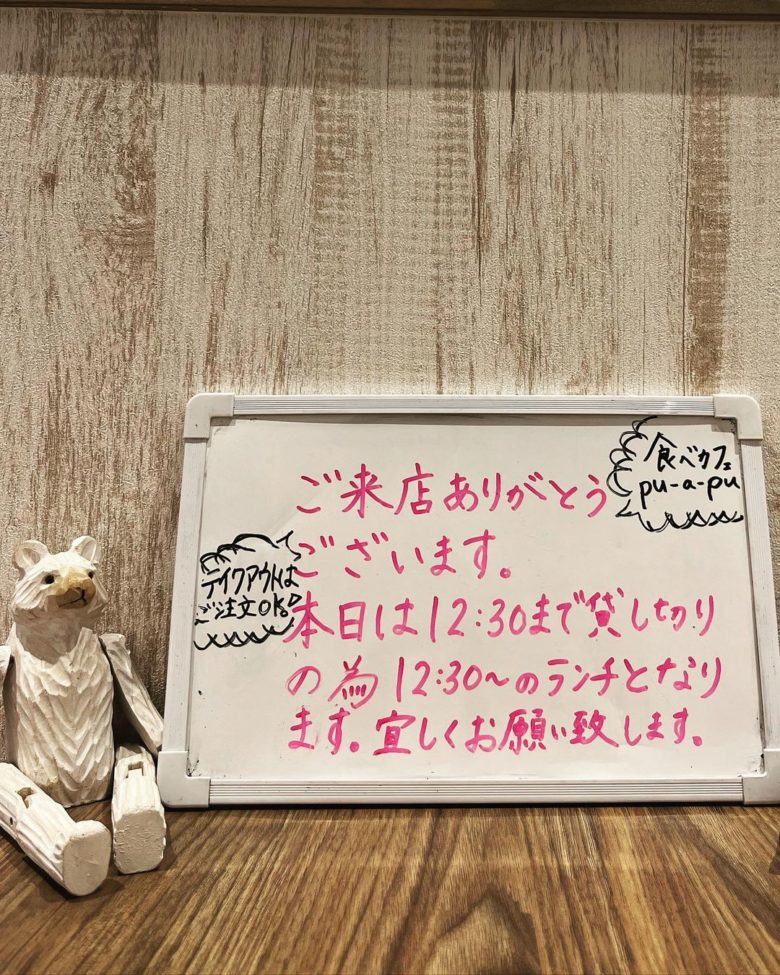 食べカフェ
pu-a-pu
ご来店ありがとう
ございます。
テイクアウトは
ご注文OK
本日は12:30まで貸し切り
の為12:30〜のランチとなり
ます。宜しくお願い致します。